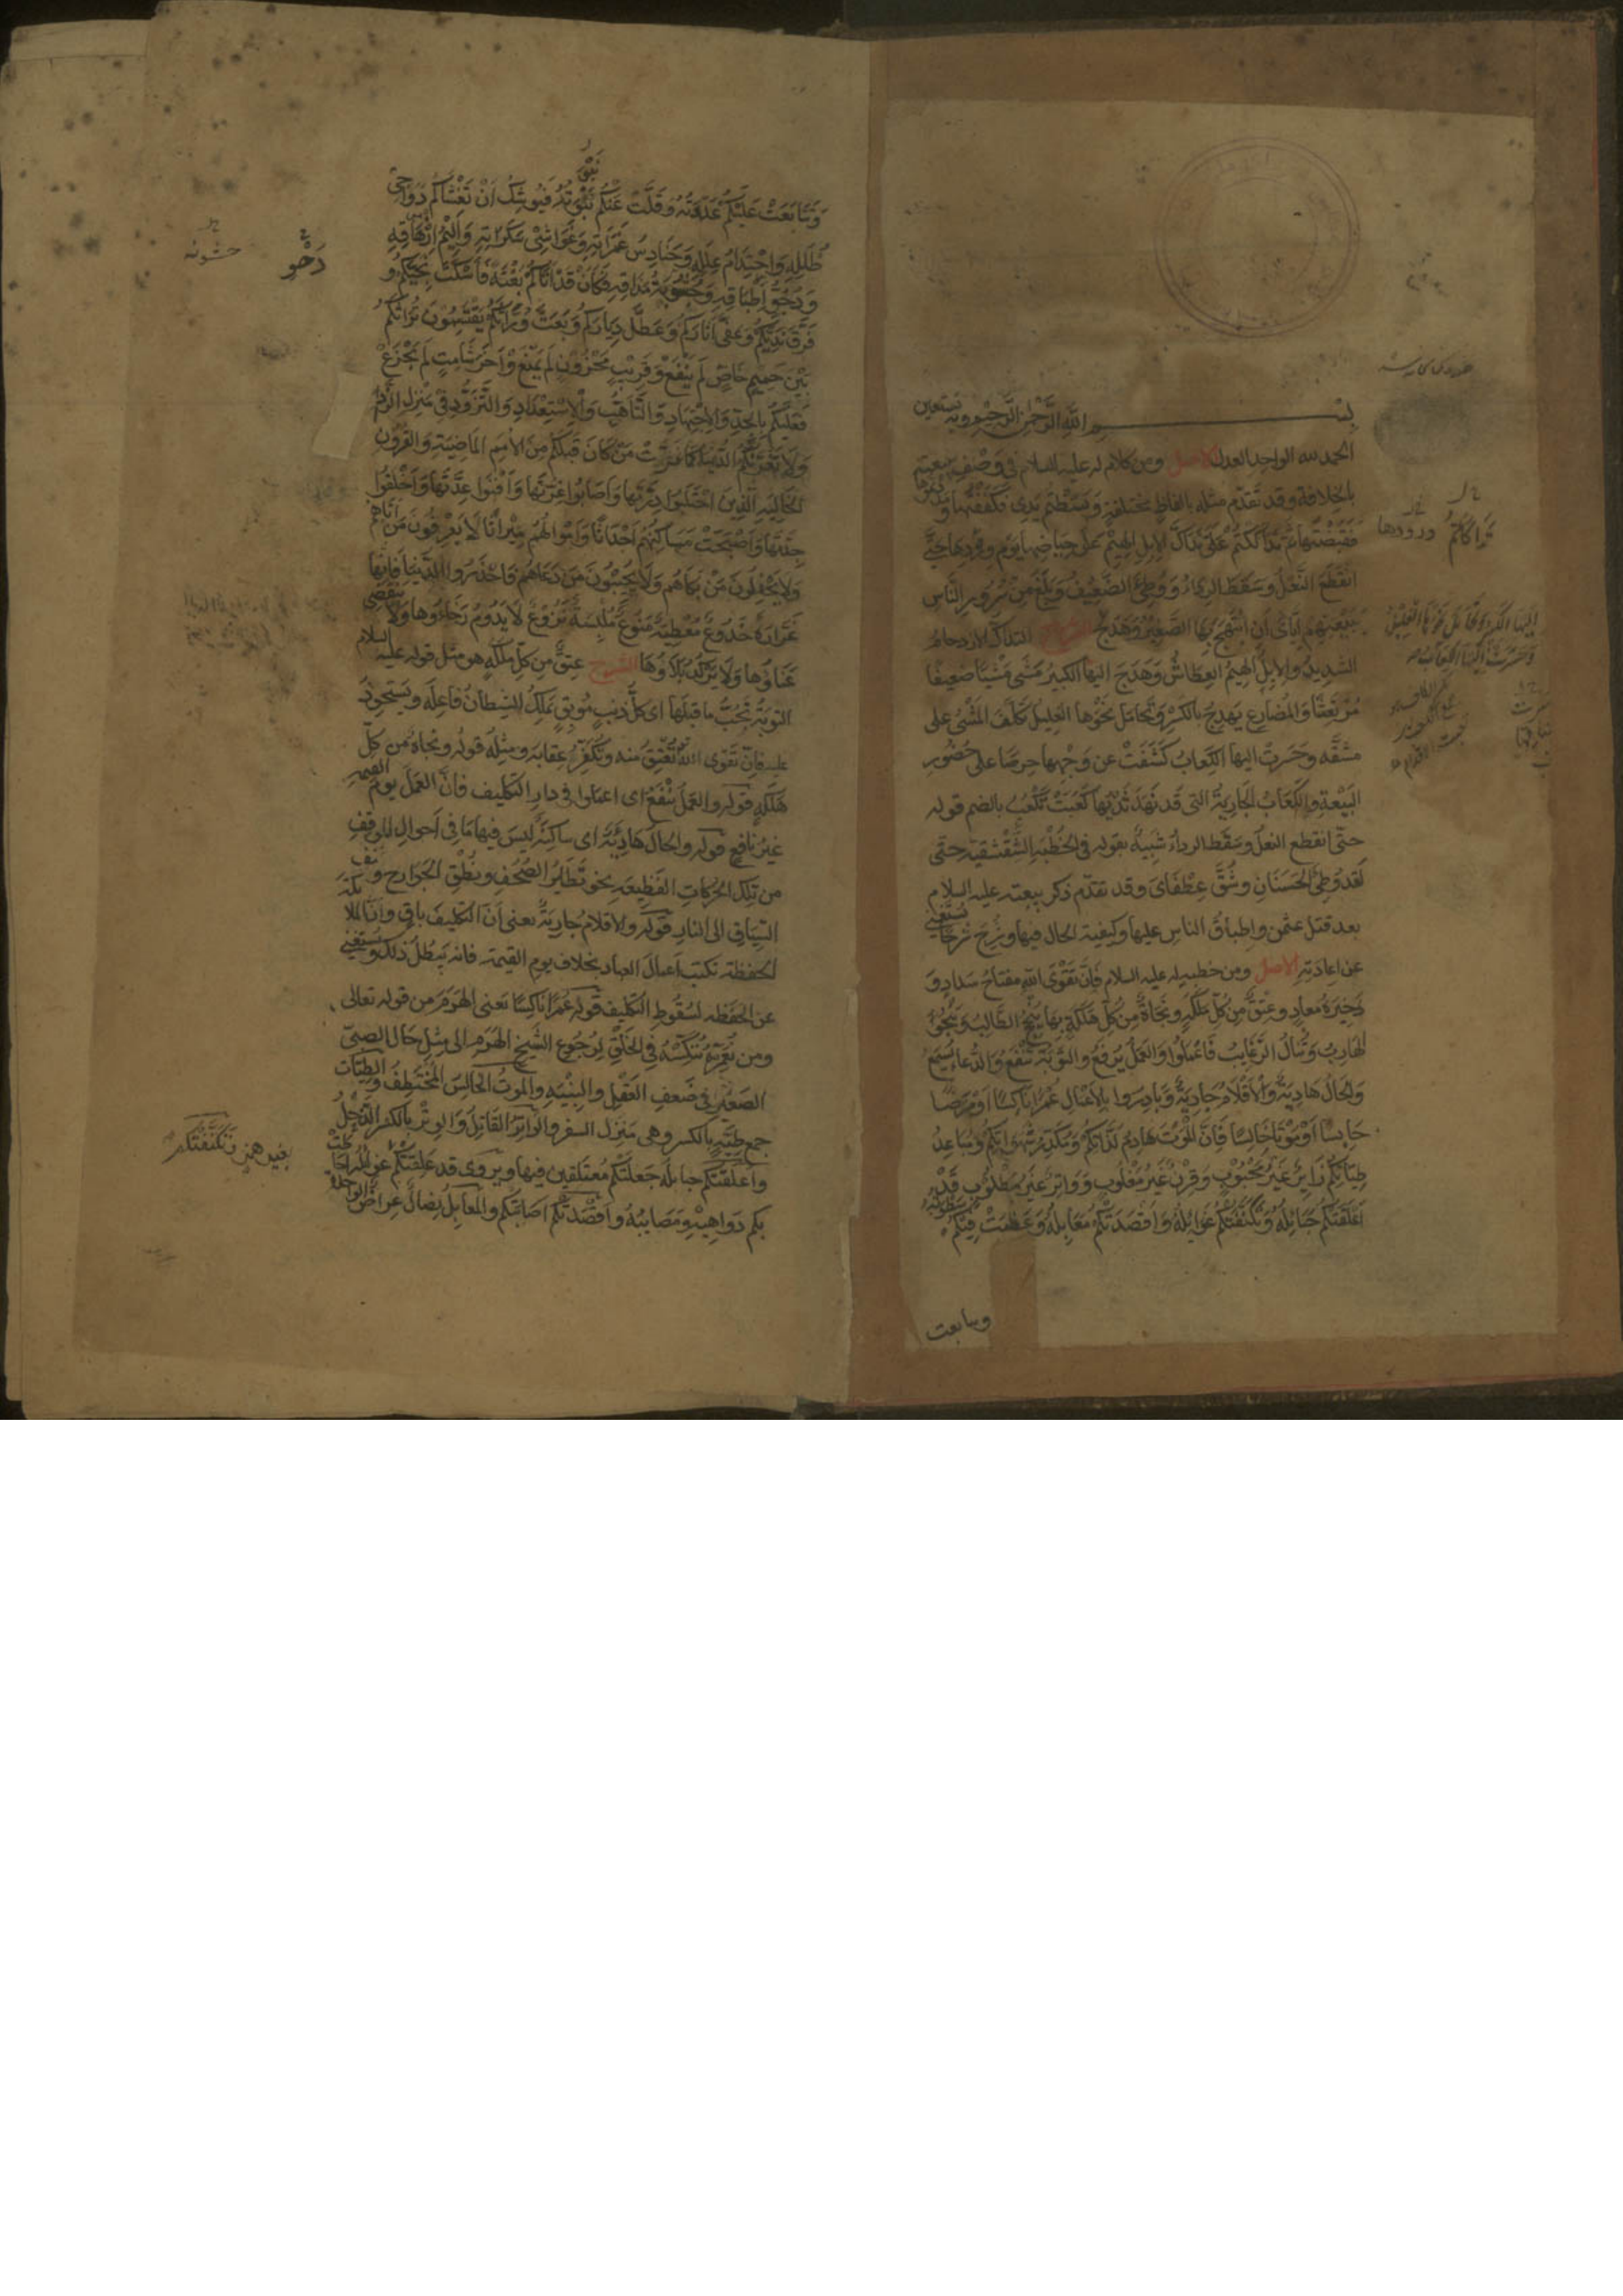 بسم الله الرحمن الرحيم وبه نستعين
الحمد لله الواحد العدل الاصل ومن كلام له عليه السلام في وصف بيعته
بالخلافة وقد تقدم مثله بالفاظ مختلفة وبسطتم يدي فكففتها ومددتموها
فقبضتها ثم تداككتم علي تداك الابل الهيم على حياضها يوم ورودها حتى
انقطع النعل وسقط الرداء ووطئ الضعيف وبلغ من سرور الناس
ببيعتهم اياي ان ابتهج بها الصغير وهدج الشرح التداك الازدحام
الشديد والابل الهيم العطاش وهدج اليها الكبير مشى مشيا ضعيفا
مرتعشا والمضارع يهدج بالكسر وتحامل نحوها العليل تكلف المشي على
مشقه وحسرت اليها الكعاب كشفت عن وجهها حرصا على حضور
البيعة والكعاب الجارية التي قد نهد ثديها كعبت تكعب بالضم قوله
حتى انقطع النعل وسقط الرداء شبيه بقوله في الخطبة الشقشقية حتى
لقد وطئ الحسنان وشق عطفاي وقد تقدم ذكر بيعته عليه السلام
بعد قتل عثمن واطباق الناس عليها وكيفية الحال فيها وشرح شرحا يستغني
عن اعادته الاصل ومن خطبه له عليه السلام فان تقوى الله مفتاح سداد و
ذخيرة معاد وعتق من كل ملكة ونجاة من كل هلكة بها ينجح الطالب وينجو
الهارب وتنال الرغايب فاعملوا والعمل يرفع والتوبة تنفع والدعاء يسمع
والحال هادية والاقلام جارية وبادروا بالاعمال عمرا ناكسا او مرضا
حابسا او موتا خالسا فان الموت هادم لذاتكم ومكدر شهواتكم ومباعد
طياتكم زاير غير محبوب وقرن غير مغلوب وواتر غير مطلوب قد
اعلقتكم حبائله وتكنفتكم غوايله واقصدتكم معابله وعظمت فيكم سطوته
وتتابعت
تداكاكتم
ورودها
اليها الكبير وتحامل نحوها العليل
وحسرت اليها الكعاب
وتتابعت عليكم عدوته وقلت عنكم نبوته فيوشك ان تغشاكم دواجي
ظلله واحتدام علله وحنادس غمراته وغواشي سكراته واليم ازهاقه
ودجو اطباقه وجشوبة مذاقه فكان قد اتاكم بغتة فاسكت نجيكم و
فرق نديكم وعفى اثاركم وعطل دياركم وبعث وراثكم يقتسمون تراثكم
بين حميم خاص لم ينفع وقريب محزون لم يمنع واخر شامت لم يجزع
فعليكم بالجد والاجتهاد والتاهب والاستعداد والتزود في منزل الزاد
ولا تغرنكم الدنيا كما غرت من كان قبلكم من الامم الماضية والقرون
الخالية الذين احتلبوا درتها واصابوا غرتها وافنوا عدتها واخلقوا
جدتها واصبحت مساكنهم اجداثا واموالهم ميراثا لا يعرفون من اتاهم
ولا يحفلون من بكاهم ولا يجيبون من دعاهم فاحذروا الدنيا فانها
غرارة خدوع معطية منوع ملبسة نزوع لا يدوم رخاؤها ولا ينقضي
عناؤها ولا يركد بلاؤها الشرح عتق من كل ملكه هو مثل قوله عليه السلام
التوبة تجب ما قبلها اى كل ذنب موبق يملك الشيطان فاعله ويستحوذ
عليه فان تقوى الله تعتق منه وتكفر عقابه ومثله قوله ونجاة من كل
هلكة قوله والعمل ينفع اى اعملوا في دار التكليف فان العمل يوم القيمة
غير نافع قوله والحال هادية اى ساكنة ليس فيها ما في احوال الموقف
من تلك الحركات الفظيعة نحو تطاير الصحف ونطق الجوارح و عنف
السياق الى النار قوله والاقلام جارية يعنى ان التكليف باق وان الملائكة
الحفظة تكتب اعمال العباد بخلاف يوم القيمة فانه يبطل ذلك ويستغنى
عن الحفظة لسقوط التكليف قوله عمرا ناكسا يعنى الهرم من قوله تعالى
ومن نعمره ننكسه في الخلق لرجوع الشيخ الهرم الى مثل حال الصبي
الصغير في ضعف العقل والبنية والموت الخالس المختطف والطيات
جمع طية بالكسر وهى منزل السفر والواتر القاتل والوتر بالكسر الذحل
واعلقتكم حبائله جعلتكم معتلقين فيها ويروى قد علقتكم
بكم دواهيه ومصايبه واقصدتكم اصابتكم والمعابل نصال عراض الواحدة
دحو
خشونة
بغير همز تكنفتكم